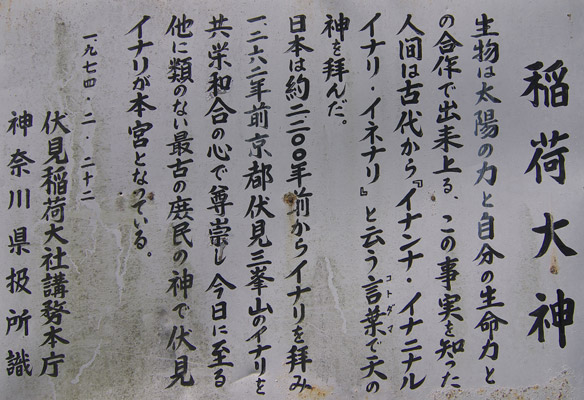 稲荷大神
生物は太陽の力と自分の生命力と
の合作で出来上る、この事実を知った
人間は古代から『イナンナ・イナニナル
イナリ・イネナリ』と云う言葉で天の
コトダマ
神を拝んだ。
日本は約二二〇〇年前からイナリを拝み
一二六二年前京都伏見三峯山のイナリを
共栄和合の心で尊崇し今日に至る
他に類のない最古の庶民の神で伏見
イナリが本宮となっている。
一九七四・二・二十二
伏見稲荷大社講務本庁
神奈川県扱所識